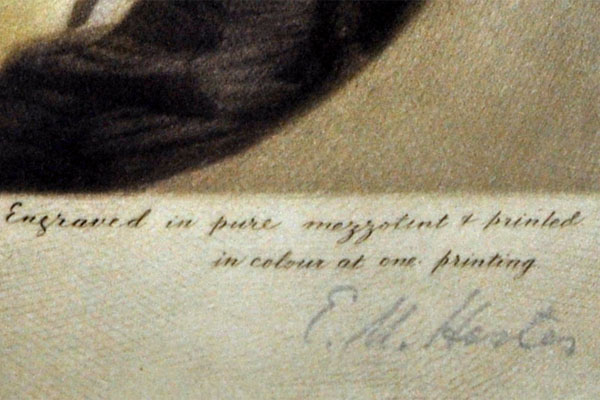 Engraved in pure mezzotint & printed
in colour at one printing
E. M. Hester